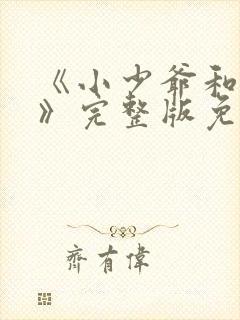 《小少爷和
》完整版免
齐有伟